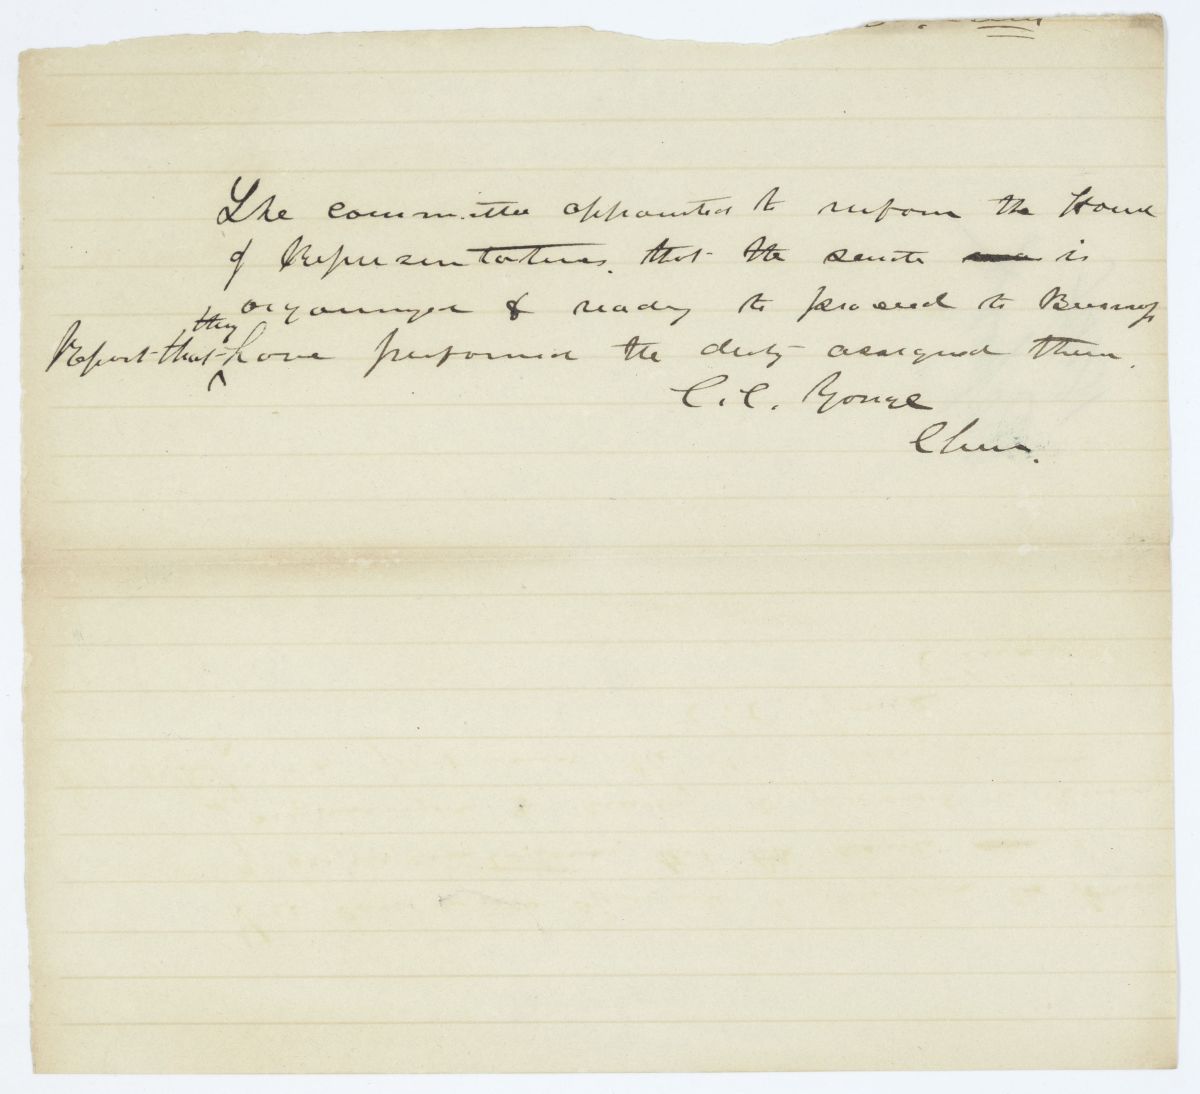 The committee appointed to inform the House
of Representatives. that the senate is
organized & ready to proceed to Business
they
Report that have performed the duty assigned them.
C. C. Yonge
Chm.